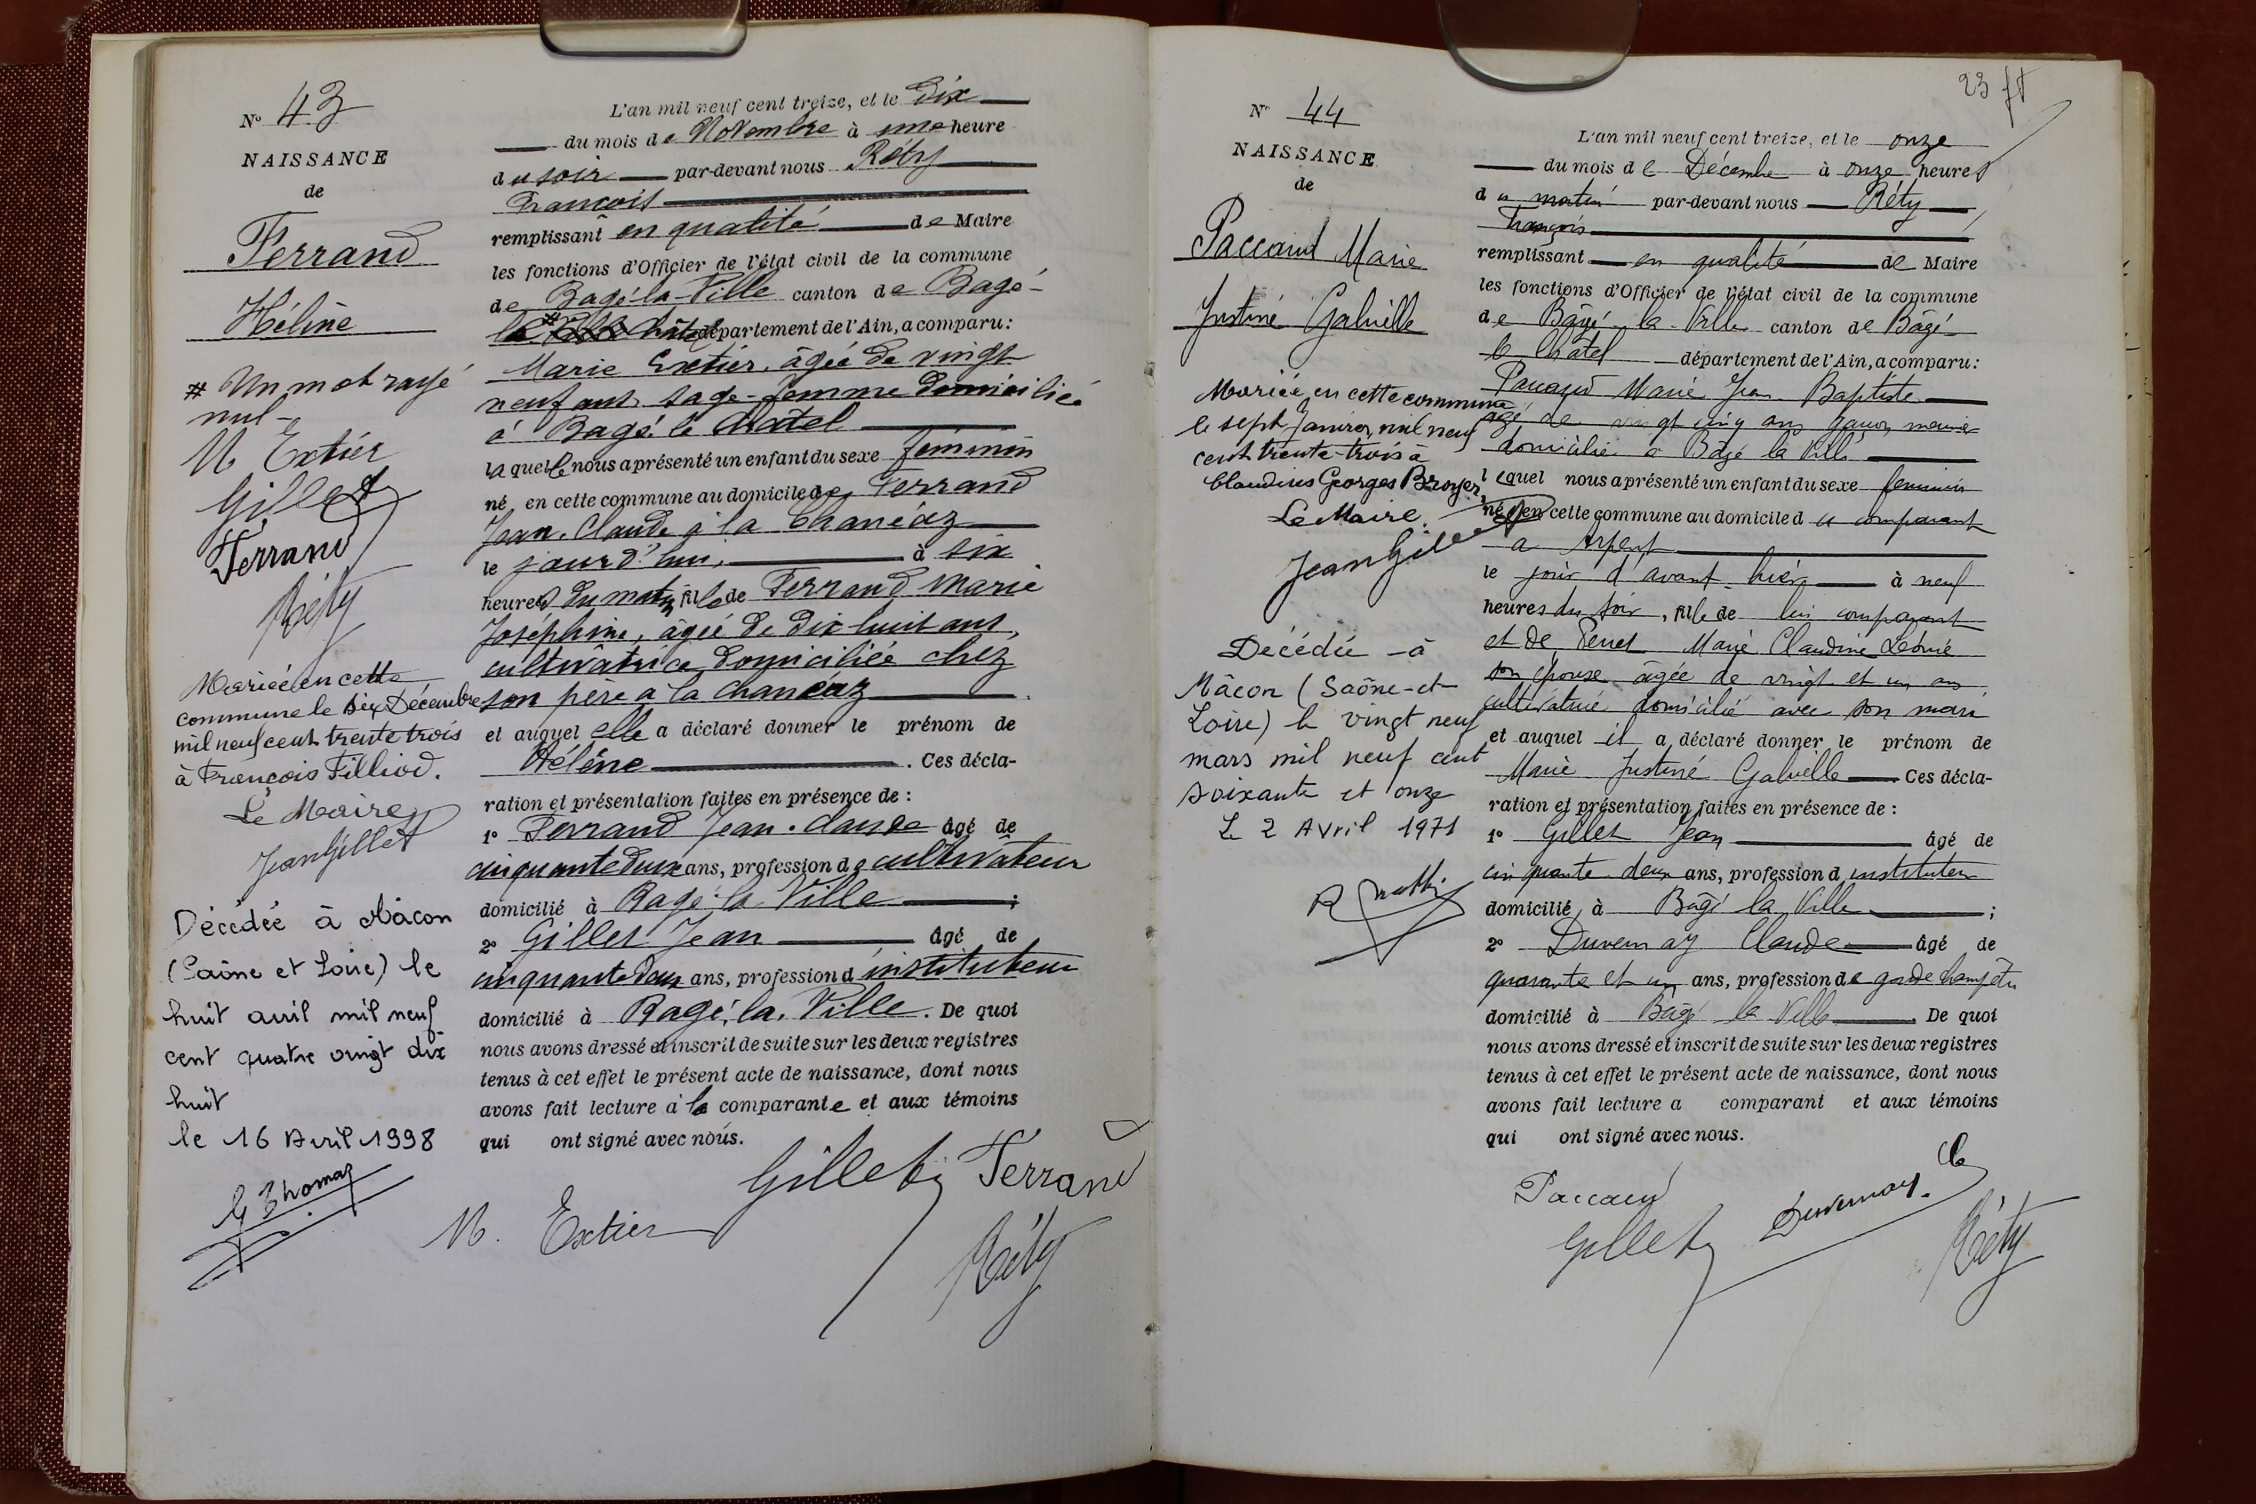 N° 43
NAISSANCE
de
Ferrand
Hélène
# Un mot rayé
nul -
M Extier
Gillet
Ferrand
Réty
Mariée en cette
commune le six Décembre
mil neuf cent trente trois
à François Filliod.
Le Maire
Jean Gillet
Décédée à Mâcon
(Saône et Loire) le
huit avril mil neuf
cent quatre vingt dix
huit
le 16 Avril 1998
G Thomas
L'an mil neuf cent treize, et le dix
du mois de Novembre à une heure
du soir par-devant nous Réty
François
remplissant en qualité de Maire
les fonctions d'Officier de l'état civil de la commune
de Bagé-la-Ville canton de Bagé-
le # châtel département de l'Ain, a comparu:
Marie Extier, âgée de vingt
neuf ans, sage-femme domiciliée
à Bagé le Châtel
laquelle nous a présenté un enfant du sexe féminin
né en cette commune au domicile de Ferrand
Jean-Claude à la Chanéaz
le jourd'hui, à six
heures du matin, fille de Ferrand Marie
Joséphine, âgée de dix huit ans,
cultivatrice domiciliée chez
son père à la Chanéaz
et auquel elle a déclaré donner le prénom de
Hélène. Ces décla-
ration et présentation faites en présence de :
1° Ferrand Jean-Claude âgé de
cinquante deux ans, profession de cultivateur
domicilié à Bagé-la-Ville ;
2° Gillet Jean âgé de
cinquante deux ans, profession d'instituteur
domicilié à Bagé-la-Ville. De quoi
nous avons dressé et inscrit de suite sur les deux registres
tenus à cet effet le présent acte de naissance, dont nous
avons fait lecture à la comparante et aux témoins
qui ont signé avec nous.
Gillet Ferrand
M. Extier
Réty
23
N° 44
NAISSANCE
de
Paccaud Marie
Justine Gabrielle
Mariée en cette commune
le sept Janvier mil neuf
cent trente-trois à
Claudius Georges Broyer,
Le Maire.
Jean Gillet
Décédée à
Mâcon (Saône-et-
Loire) le vingt neuf
mars mil neuf cent
soixante et onze
Le 2 Avril 1971
L'an mil neuf cent treize, et le onze
du mois de Décembre à onze heures
du matin par-devant nous Réty
François
remplissant en qualité de Maire
les fonctions d'Officier de l'état civil de la commune
de Bâgé-la-Ville canton de Bâgé-
le Châtel département de l'Ain, a comparu:
Paccaud Marie Jean Baptiste
âgé de vingt cinq ans
domicilié à Bâgé la Ville
lequel nous a présenté un enfant du sexe féminin
né en cette commune au domicile du comparant
a Arpent
le jour d'avant hier à neuf
heures du soir, fille de lui comparant
et de Perret Marie Claudine Léonie
son épouse âgée de vingt et un ans,
cultivatrice domiciliée avec son mari
et auquel il a déclaré donner le prénom de
Marie Justine Gabrielle Ces décla-
ration et présentation faites en présence de :
1° Gillet Jean âgé de
cinquante deux ans, profession d'instituteur
domicilié à Bâgé la Ville ;
2° Duvernay Claude âgé de
quarante et un ans, profession de garde champêtre
domicilié à Bâgé la Ville. De quoi
nous avons dressé et inscrit de suite sur les deux registres
tenus à cet effet le présent acte de naissance, dont nous
avons fait lecture a comparant et aux témoins
qui ont signé avec nous.
Paccaud
Gillet Duvernay Cla
Réty